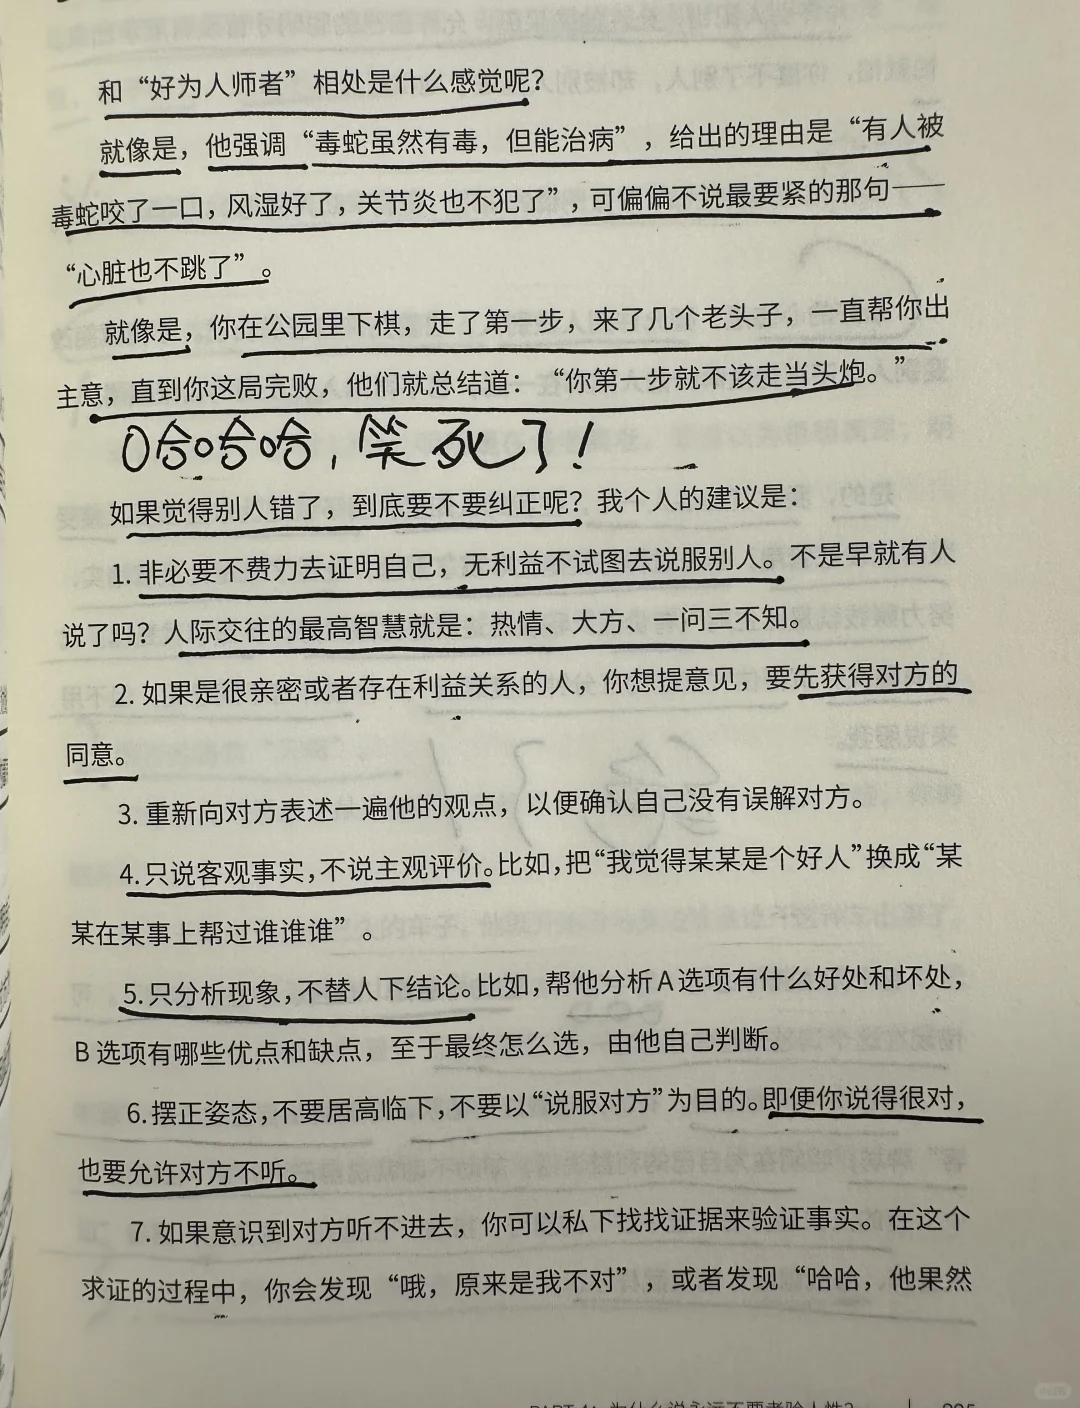 和“好为人师者”相处是什么感觉呢？
就像是，他强调“毒蛇虽然有毒，但能治病”，给出的理由是“有人被
毒蛇咬了一口，风湿好了，关节炎也不犯了”，可偏偏不说最要紧的那句——
“心脏也不跳了”。
就像是，你在公园里下棋，走了第一步，来了几个老头子，一直帮你出
主意，直到你这局完败，他们就总结道：“你第一步就不该走当头炮。”
哈哈哈，笑死了！
如果觉得别人错了，到底要不要纠正呢？我个人的建议是：
1. 非必要不费力去证明自己，无利益不试图去说服别人。不是早就有人
说了吗？人际交往的最高智慧就是：热情、大方、一问三不知。
2. 如果是很亲密或者存在利益关系的人，你想提意见，要先获得对方的
同意。
3. 重新向对方表述一遍他的观点，以便确认自己没有误解对方。
4. 只说客观事实，不说主观评价。比如，把“我觉得某某是个好人”换成“某
某在某事上帮过谁谁谁”。
5. 只分析现象，不替人下结论。比如，帮他分析A选项有什么好处和坏处，
B选项有哪些优点和缺点，至于最终怎么选，由他自己判断。
6. 摆正姿态，不要居高临下，不要以“说服对方”为目的。即便你说得很对，
也要允许对方不听。
7. 如果意识到对方听不进去，你可以私下找找证据来验证事实。在这个
求证的过程中，你会发现“哦，原来是我不对”，或者发现“哈哈，他果然